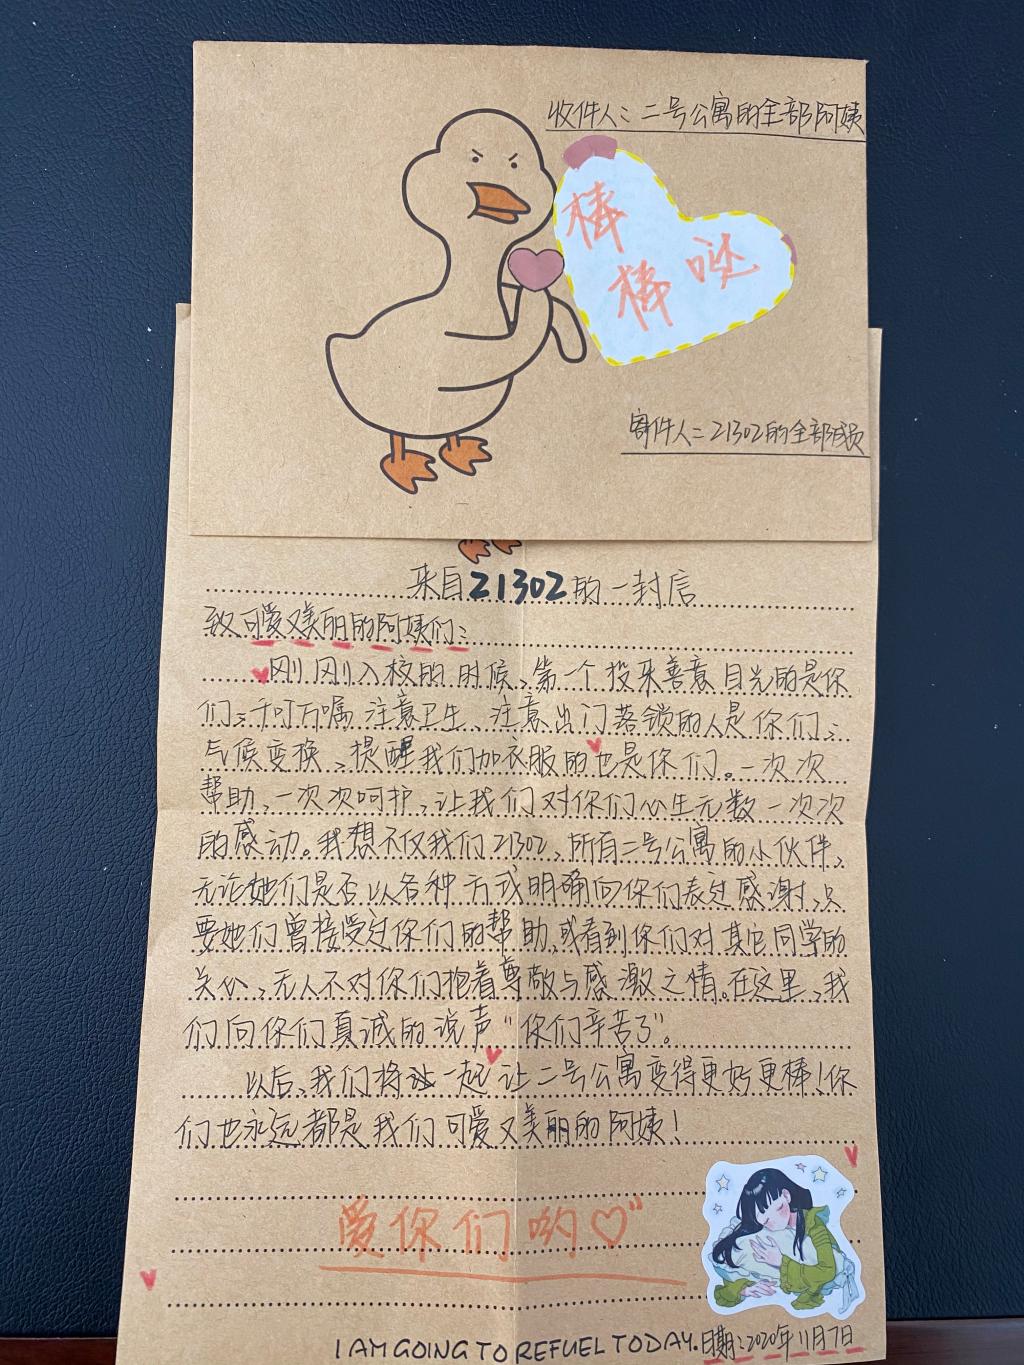 收件人：二号公寓的全部阿姨
棒
棒 哒
寄件人：21302的全部成员
来自21302的一封信
致可爱又美丽的阿姨们：
刚刚入校的时候，第一个投来善意目光的是你
们；千叮万嘱注意卫生、注意出门落锁的人是你们；
气候变换，提醒我们加衣服的也是你们。一次次
帮助，一次次呵护，让我们对你们心生无数一次次
的感动。我想不仅我们21302，所有二号公寓的小伙伴，
无论她们是否以各种方式明确向你们表过感谢，只
要她们曾接受过你们的帮助，或看到你们对其它同学的
关心，无人不对你们抱着尊敬与感激之情。在这里，我
们向你们真诚的说声“你们辛苦了”。
以后，我们将一起让二号公寓变得更好更棒！你
们也永远都是我们可爱又美丽的阿姨！
爱你们哟♡
I AM GOING TO REFUEL TODAY. 日期：2020年11月7日